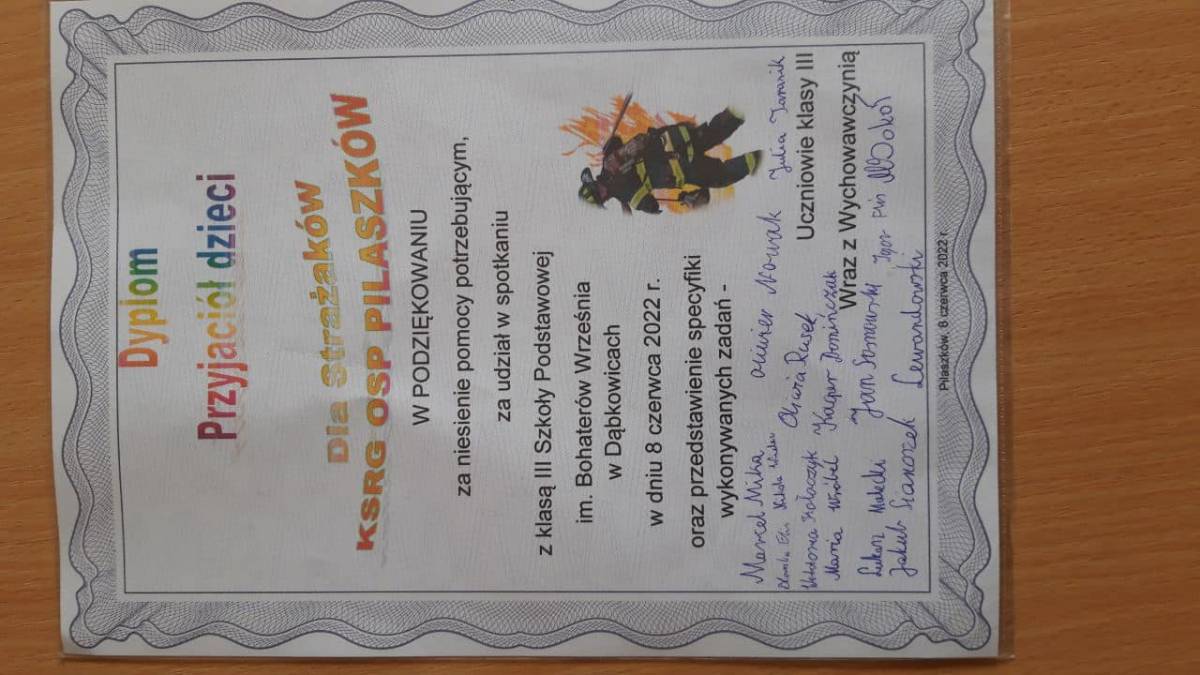 Dyplom
Przyjaciół dzieci
Dla strażaków
KSRG OSP PILASZKÓW
W PODZIĘKOWANIU
za niesienie pomocy potrzebującym,
za udział w spotkaniu
z klasą III Szkoły Podstawowej
im. Bohaterów Września
w Dąbkowicach
w dniu 8 czerwca 2022 r.
oraz przedstawienie specyfiki
wykonywanych zadań -
Marcel Mika Oliwier Nowak Julia Tararnik
Oliwia Rusek
Uczniowie klasy III
Maria Wróbel Kacper Domińczak
Wraz z Wychowawczynią
Łukasz Małecki Jan Sosnowski Igor Piś
Jakub Sianoszek Lewandowski
Pilaszków, 8 czerwca 2022 r.